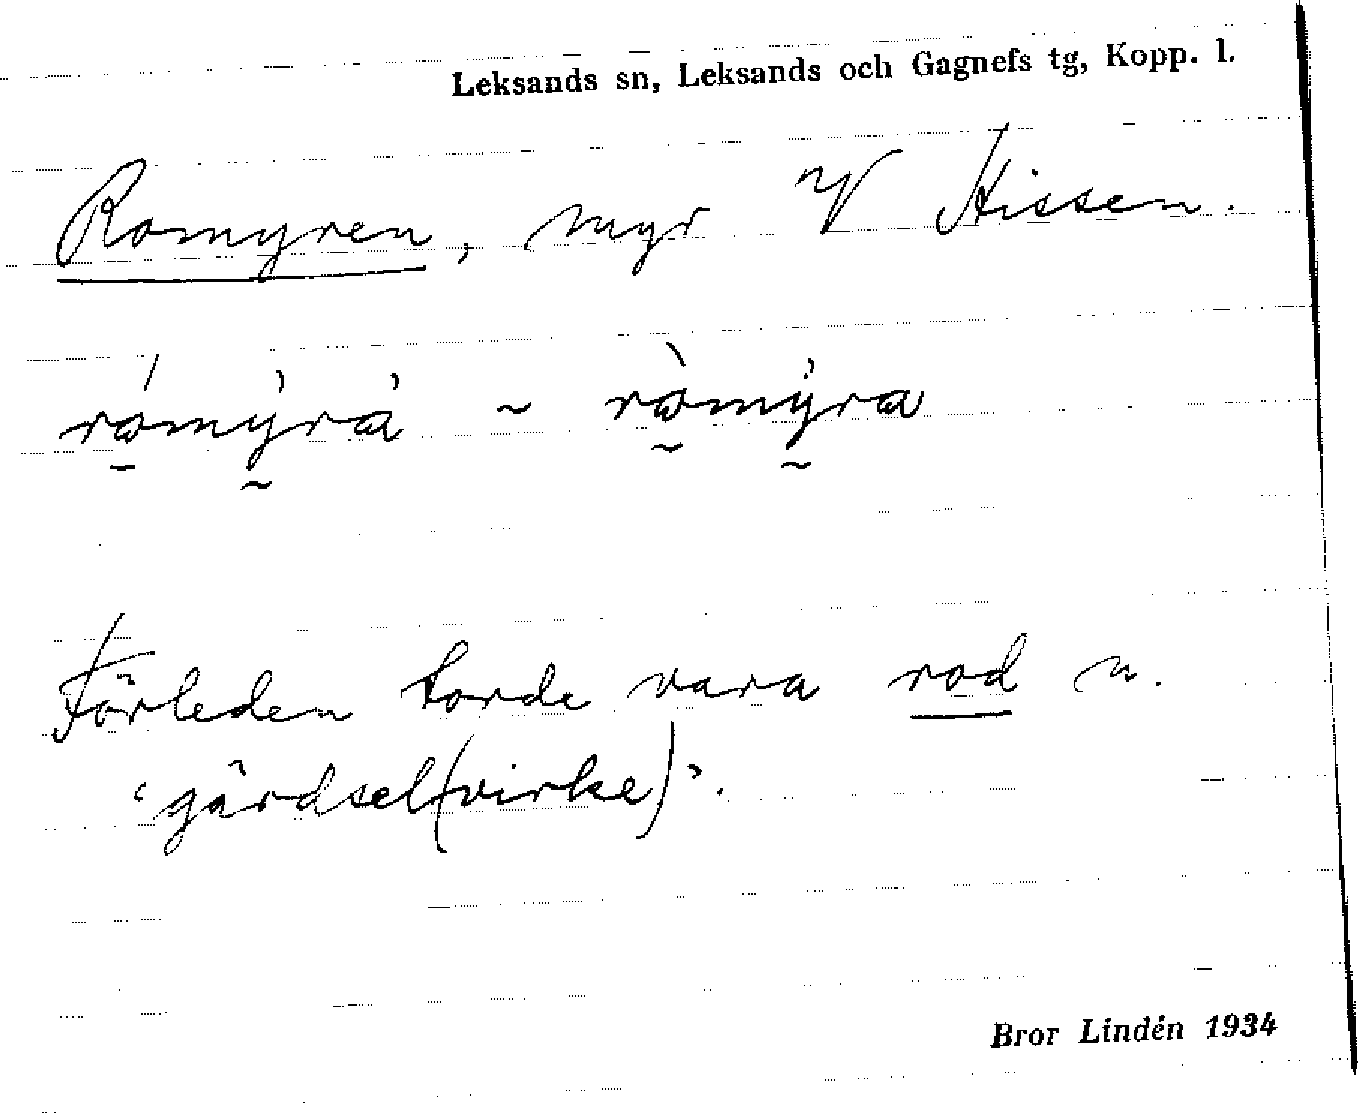 Leksands sn, Leksands och Gagnefs tg, Kopp. l.
Romyren, myr V Hissen.
ró̠mỳ̰rà ~ rò̰mỳ̰ra
Förleden torde vara rod n.
‘gärdsel(virke)’.
Bror Lindén 1934